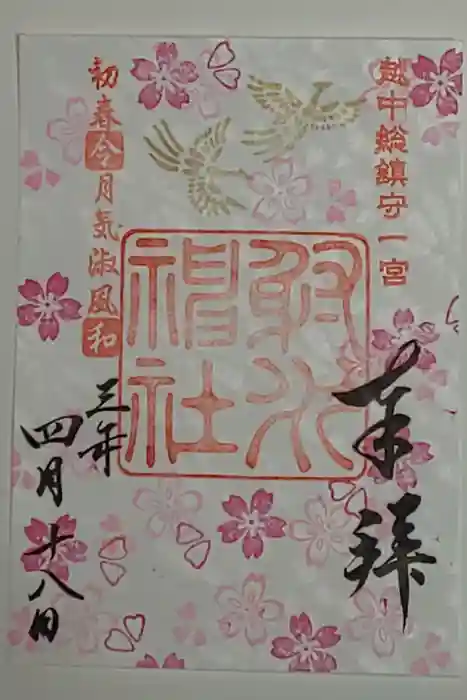 越中総鎮守一宮
奉拝
射水
神社
初春令月気淑風和
三年
四月十八日